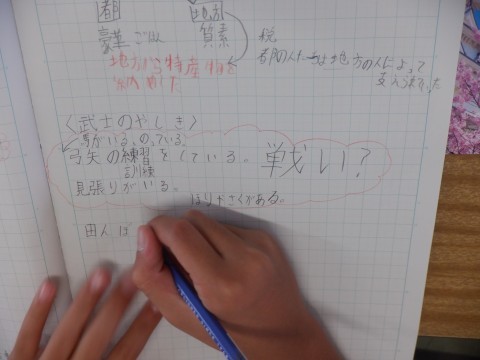 都 地方
豪華 ごうか 質素
税
都の人たちは地方の人によって
支えられた
地方から特産物を
納めた
〈武士のやしき〉
馬がいる、のっている。
弓矢の練習をしている。戦い？
訓練
見張りがいる。
ほりやさくがある。
田んぼ